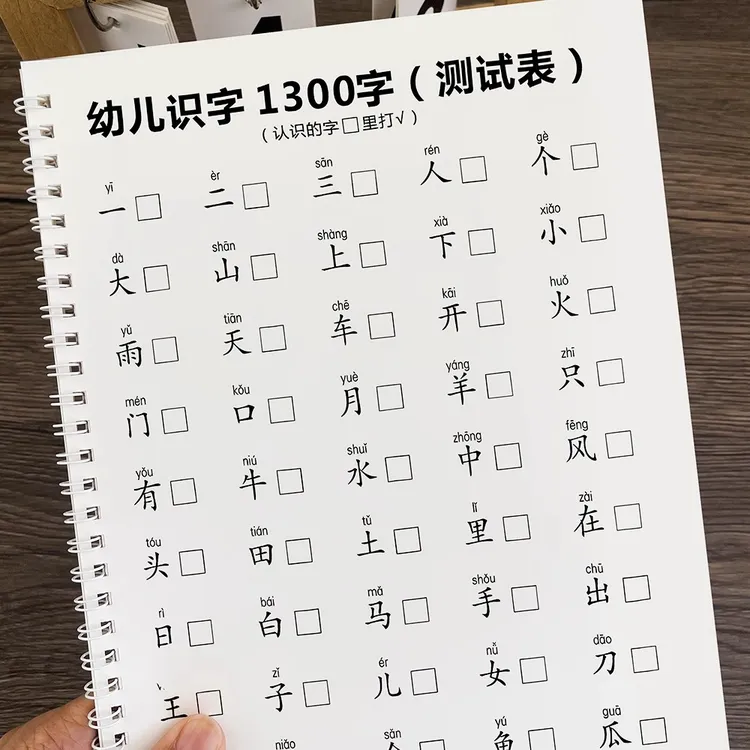 幼儿识字 1300字（测试表）
（认识的字□里打√）
yī èr sān rén gè
一□ 二□ 三□ 人□ 个□
dà shān shàng xià xiǎo
大□ 山□ 上□ 下□ 小□
yǔ tiān chē kāi huǒ
雨□ 天□ 车□ 开□ 火□
mén kǒu yuè yáng zhī
门□ 口□ 月□ 羊□ 只□
yǒu niú shuǐ zhōng fēng
有□ 牛□ 水□ 中□ 风□
tóu tián tǔ lǐ zài
头□ 田□ 土□ 里□ 在□
rì bái mǎ shǒu chū
日□ 白□ 马□ 手□ 出□
zǐ ér nǚ dāo
王□ 子□ 儿□ 女□ 刀□
niǎo sǎn yú guā
鱼□ 瓜□